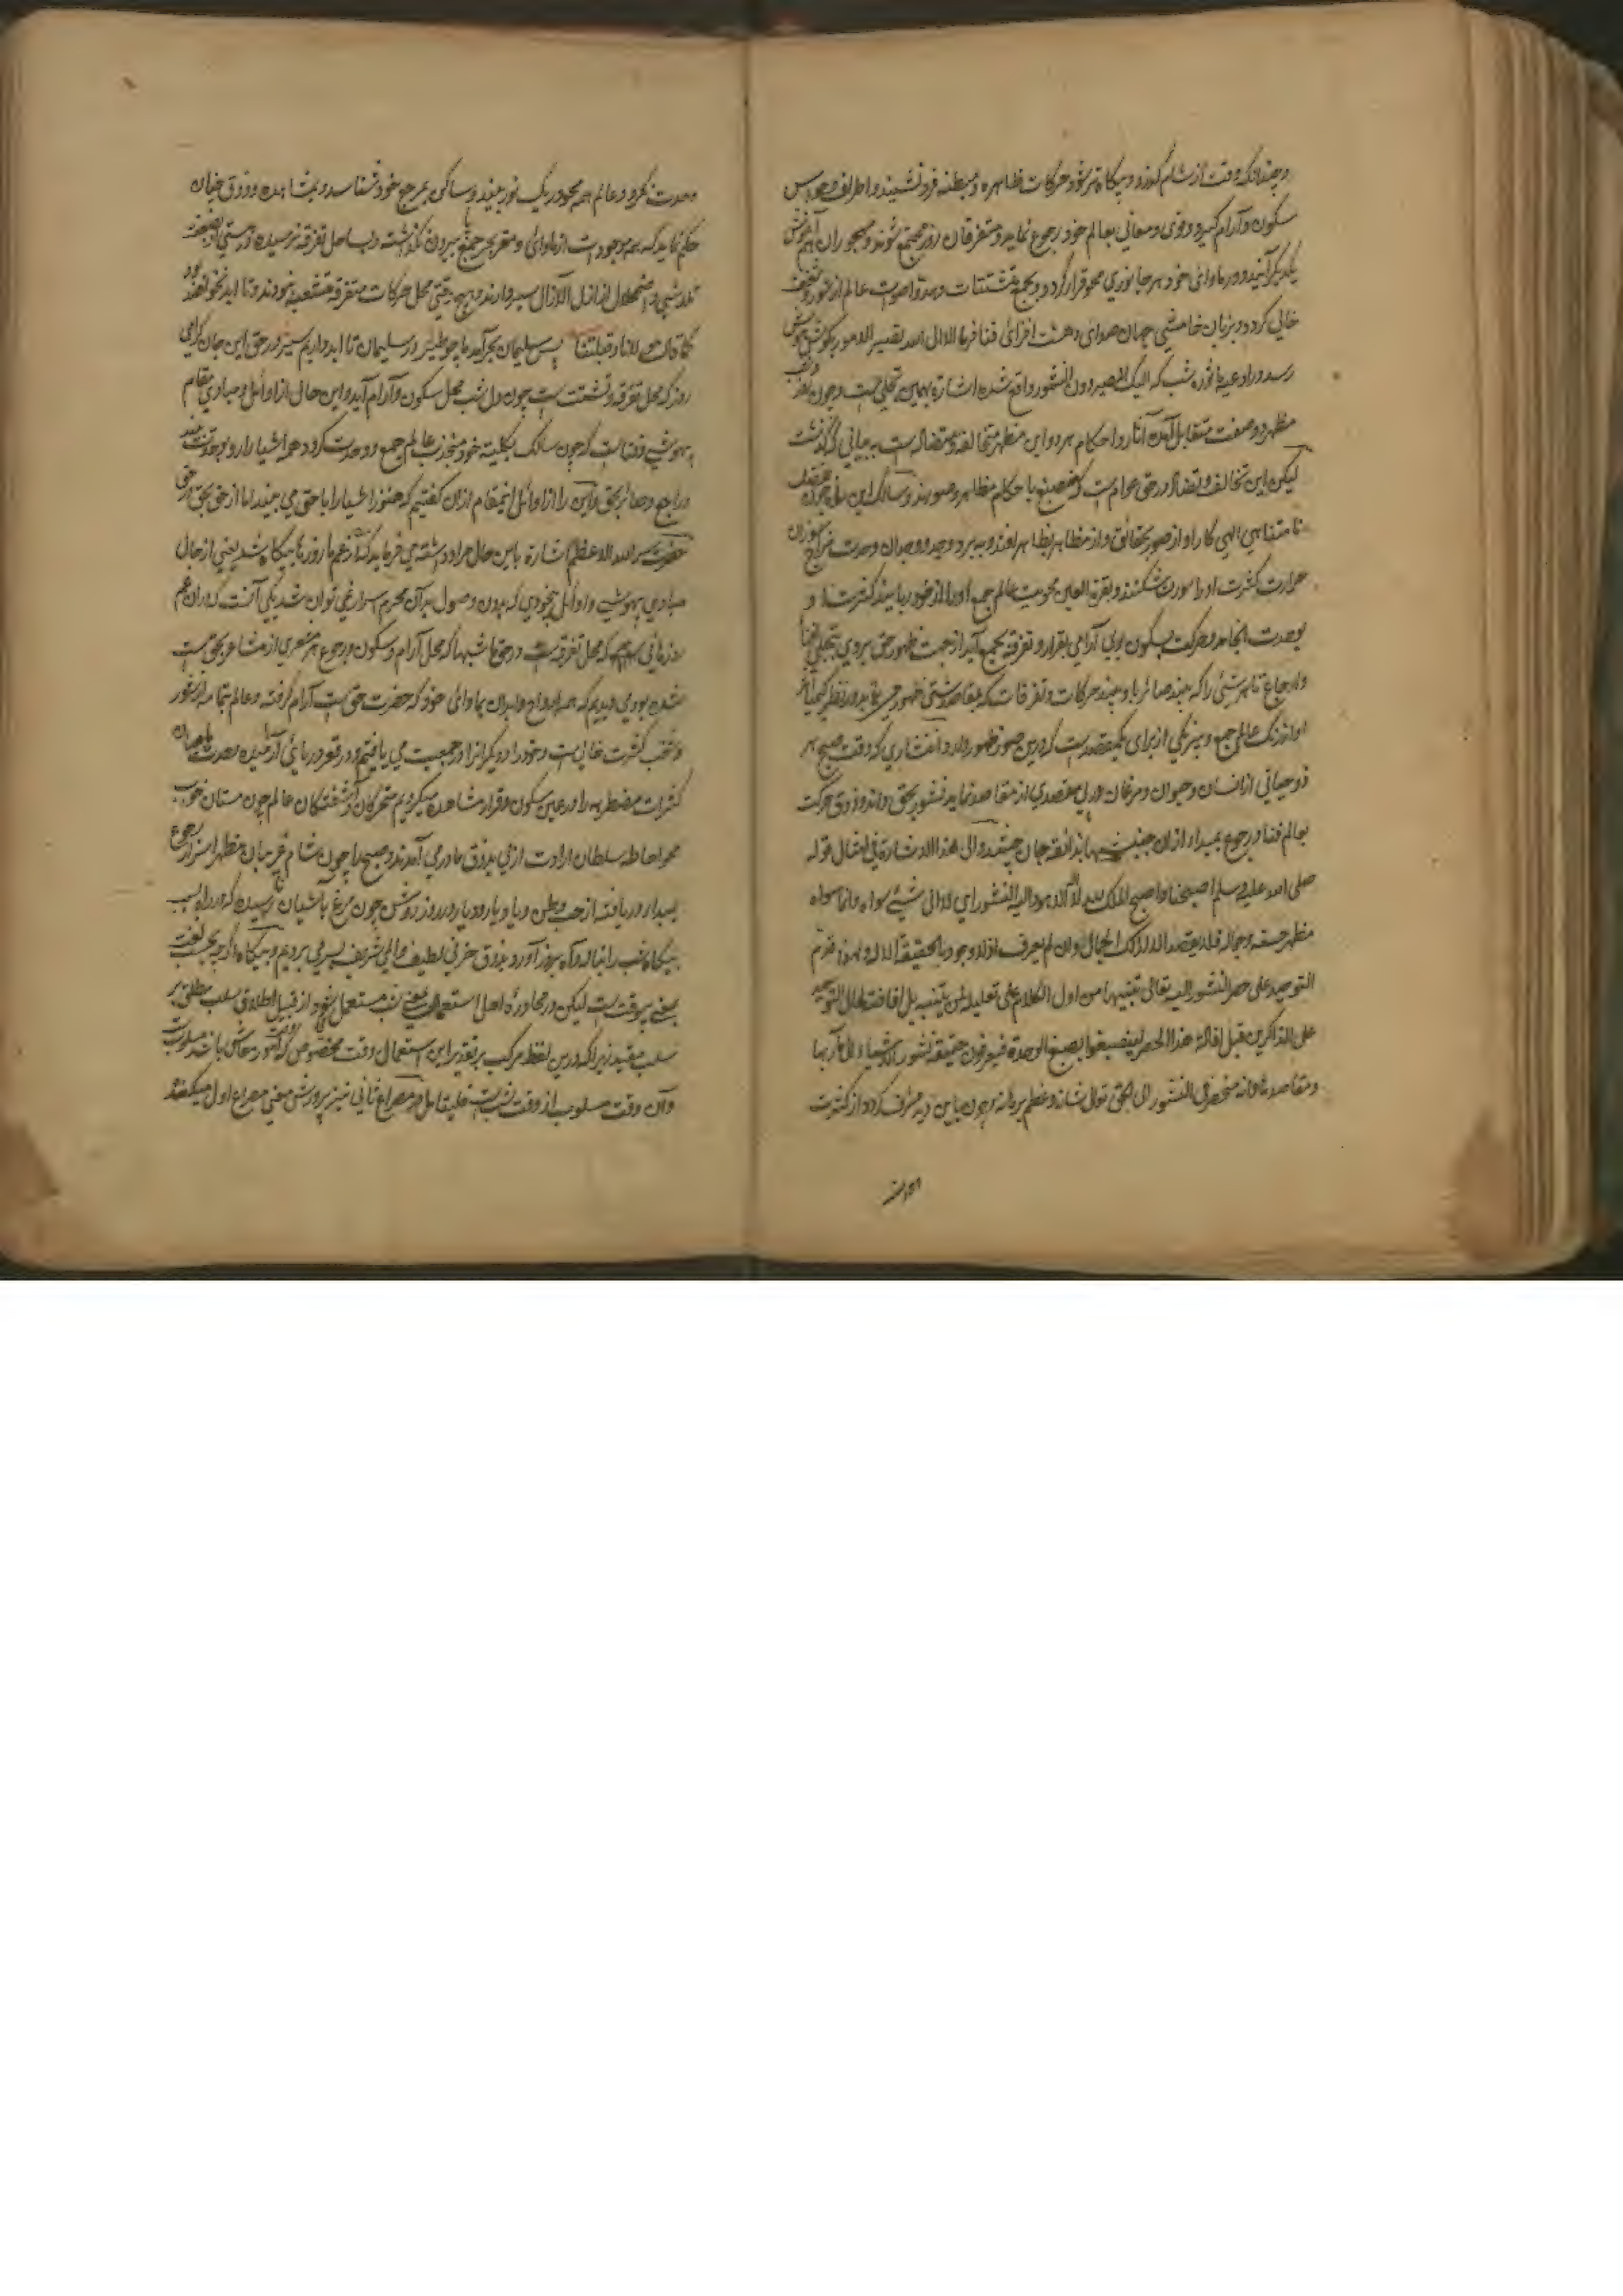 و چندانکه وقت از شام گذرد و بیگاه تر شود حرکات ظاهره و مبطنه فرو نشیند و اطراف و حواس
سکون و آرام گیرد و قوی و معانی بعالم خود رجوع نماید و متفرقان روز مجتمع شوند و مهجوران
یکدیگر آیند و در ماوای خود هر جانوری محو قرار گردد و بجمع تشتتات وحدت عالم از
خالی گردد و بزبان خامشی جهان صدای دهشت افزای فنا فرما الا الی الله تصیر الامور بگوش هوش
رسد و در ادعیه ماثوره شب که الیک المصیر دون النشور واقع شده اشارة بهمین تجلی است و چون
مظهر دو صفت متقابل آمدن آثار و احکام هر دو این مظهر متخالف و متضاد است به بیانی که گذشت
لیکن این تخالف و تضاد در حق عوام است که منصبغ باحکام مظاهر و صورند و سالک این راه چون
نامتناهی الهی کار او از صور بحقایق و از مظاهر بظاهر افتد و به برد وجد و وجدان وحدت
حرارت کثرت او را صورت شکنند و بقرة العین محویت عالم جمع او را از خود رباید کثرت او
بوحدت انجامد و حرکت بسکون و بی آرامی بقرار و تفرقه بجمع آید از جهت ظهور حق بروی بتجلی
و ارجاع تا هر شئی را که بیند صائر با و بیند حرکات و تفرقات که بمقاصد شتی ظهور می نماید در نظر
او از رنگ عالم جمع و بیرنگی از برای یک مقصد است که درین صور ظهور دارد و انتشاری که وقت صبح هر
ذوحیاتی از انسان و حیوان و مرغان در پی مقصدی از مقاصد نماید نشور بحق داند و ذوق حرکت
بعالم فنا و رجوع بمبدا از ان جنبشها بذائقه جان چشد و الی هذا الاشارة فی امثال قوله
صلی الله علیه و سلم اصبحنا و اصبح الملک لله لا اله الا هو و الیه النشور ای لا الی شیئ سواه و انما سواه
مظهر حسنه و جماله فلا یقصد الا ذلک الجمال و ان لم یعرف اذ لا وجود بالحقیقة الا له و لهذا قدم
التوحید علی حصر النشور الیه تعالی تنبیها من اول الکلام علی تعلیله لمن یتنبه بل افاضة لحال التوحید
علی الذاکرین قبل افادة هذا الحصر لینصبغوا بصبغ الوحدة فیعرفون حقیقة نشور الاشیاء الی مآربها
و مقاصدها و انه منحصر فی النشور الی الحق تعالی شانه و عظم برهانه و چون باین دید مشرف گردد از کثرت
وحدت نگرد و عالم همه محو در یک نور بیند و ساکن بمرجع خود شناسد و بمشاهده و ذوق چنان
حکم نماید که همه موجودات از ماوای و مقر بحر جمع بیرون نگذشته و بساحل تفرقه نرسیده
تلاشی و اضمحلال از ازل الآزال سپردارند و بهیچ جهتی محل حرکات متفرقه متشعبه نبودند و تا ابد نخواهند بود
کما قال مولانا و قبلتنا پس سلیمان بجر آمد ما چو طیر در سلیمان تا ابد داریم سیر و در حق این جان گرامی
روز که محل تفرقه و تشتت است چون دل شب محل سکون و آرام آید و این حال از اوائل و مبادی مقام
بیهوشی و فنا است که چون سالک بکلیته خود منجذب بعالم جمع و وحدت گردد همه اشیا را رو بوحدت بیند
و راجع و صائر بحق و این را از اوائل اینمقام ازان گفتیم که هنوز اشیا را با حق می بیند اما از حق بحق
حضرت سر الله الاعظم اشارة باین حال مراد داشته می فرماید که در غم ما روزها بیگاه شد یعنی از حال
مبادی بیهوشی و اوائل بیخودی که بدون وصول بدان محرم اسرار غمی توان شد یکی آنست که در ان غم
روزهایی که محل تفرقه است در حق ما شبها که محل آرام و سکون و رجوع هر مشعری از مشاعر بحق است
شده بودی و دیدیم که همه ارواح و ابدان بماوای خود که حضرت حق است آرام گرفته و عالم بتمامه از شور
و شغب کثرت خالی است و خود را و دیگرانرا در جمعیت می یافتیم و در قعر دریای آرمیده وحدت
کثرات مضطربه را در عین سکون و قرار مشاهده میکردیم متحرکان و آشفتگان عالم چون مستان خواب
محو احاطه سلطان ارادت ازلی بذوق ما در می آمدند و صبحها چون شام غریبان مظهر اسرار رجوع
بمبدا دریافته از حب وطن و یاد یار و دیار در روز روشن چون مرغ بآشیان رسیده که در راه
بیگاه شب را بناله و آه بروز آورد بذوق حزنی لطیف و المی شریف بسر می بردیم و بیگاه اگرچه بحسب لغت
بمعنی بیوقت است لیکن در محاوره اهل استعمال بمعنی شب مستعمل شود از قبیل اطلاق سلب مطلق بر
سلب مقید زیرا که درین لفظ مرکب بر تقدیر این استعمال وقت مخصوص که روز است و امور معاش باشد مسلوب است
و آن وقت مسلوب از وقت شب است فلیتامل و مصراع ثانی نیز پرورش معنی مصراع اول میکند